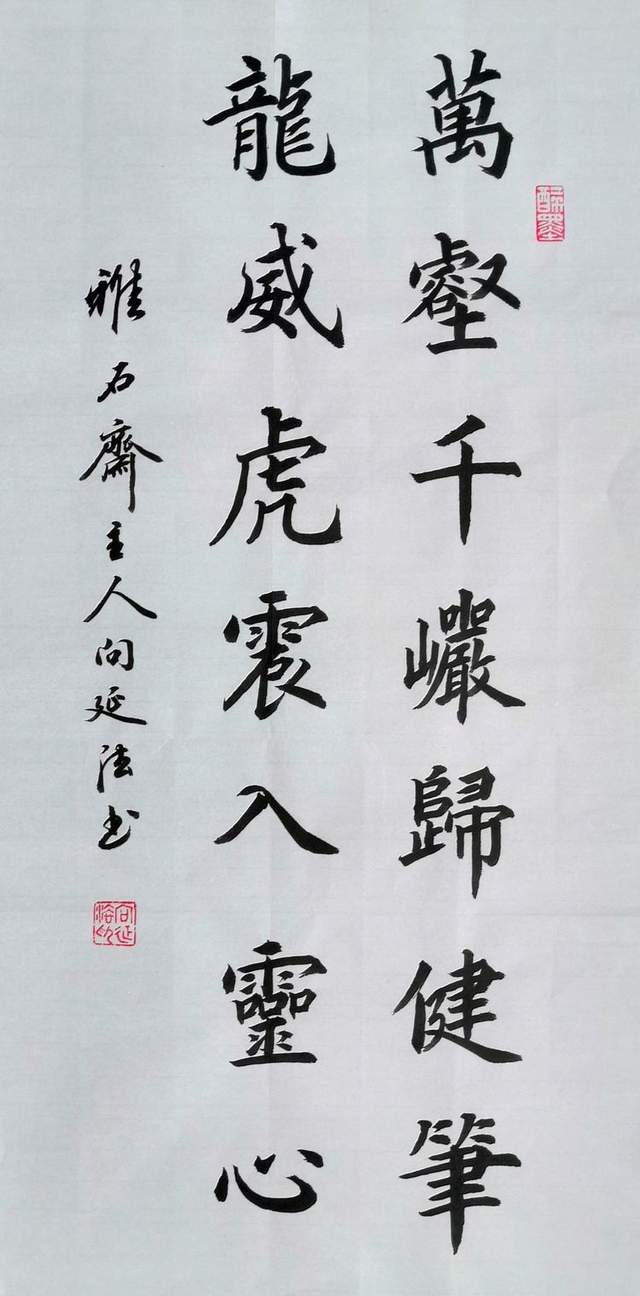 萬壑千巖歸健筆
龍威虎震入靈心
雅石齋主人向延法书